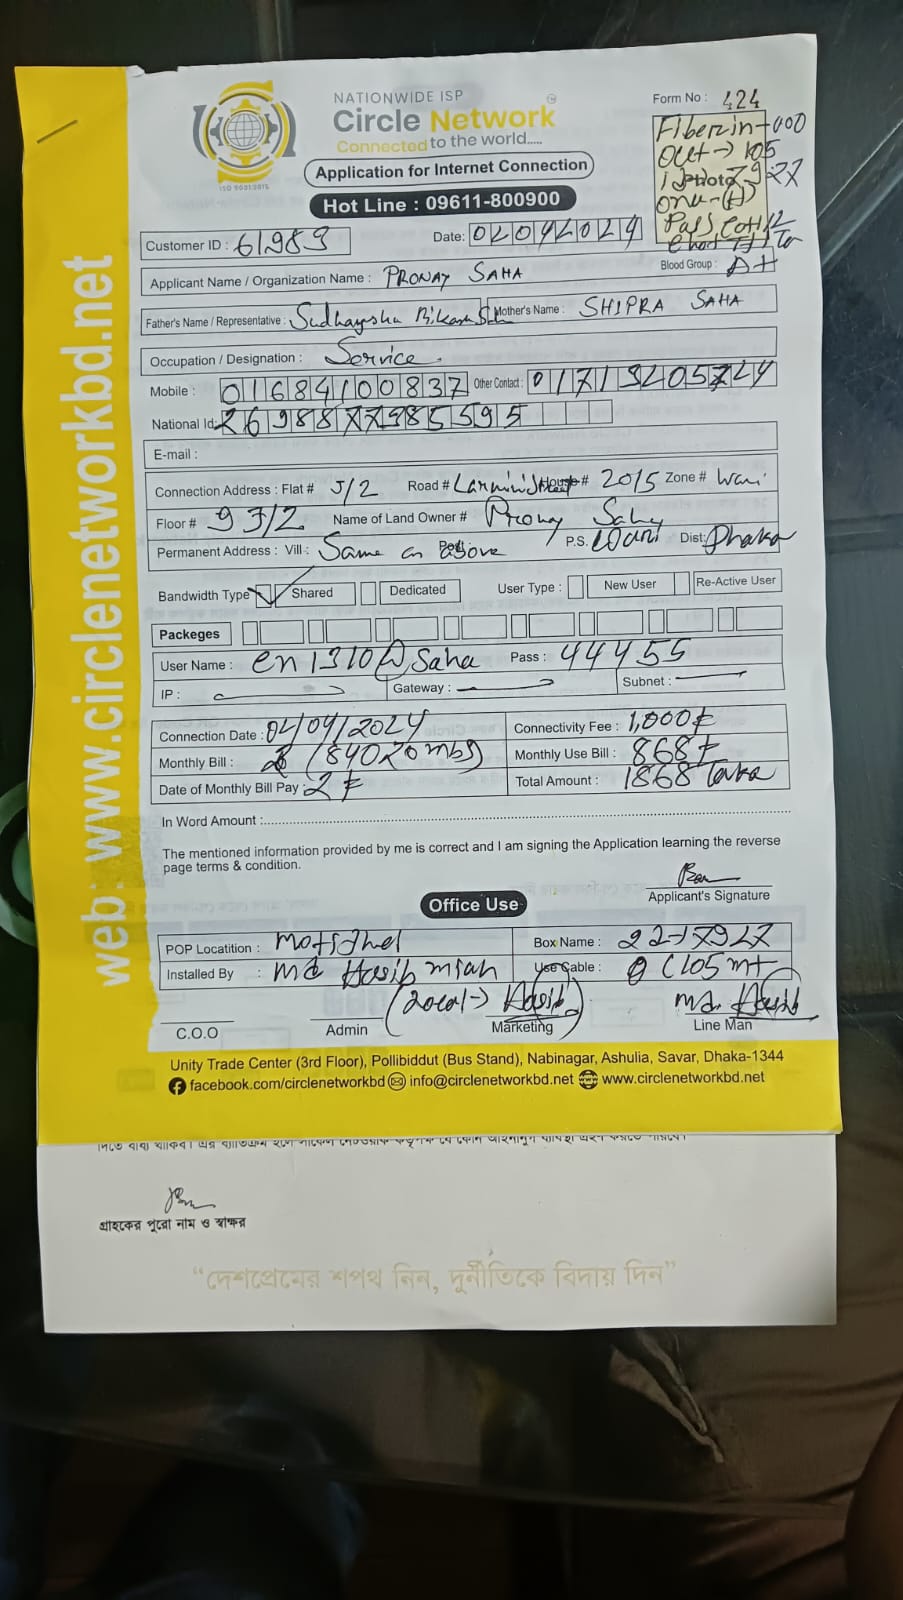 NATIONWIDE ISP
Circle Network
Connected to the world.....
ISO 9001:2015
Application for Internet Connection
Hot Line : 09611-800900
Form No : 424
Fiber in - 000
out -> 105
Photo
onu-(H)
Customer ID : 61989
Date: 02042024
Blood Group : A+
Applicant Name / Organization Name : PRONAY SAHA
Father's Name / Representative : Sudhangshu Bikash Mother's Name : SHIPRA SAHA
Occupation / Designation : Service
Mobile : 01684100837 Other Contact :
National Id.
E-mail :
Connection Address : Flat # J/2 Road # House # 2015 Zone # Wari
Floor # 9 J/2 Name of Land Owner # Pronay Saha
Permanent Address : Vill : Same as above Post: P.S. Wari Dist: Dhaka
Bandwidth Type Shared Dedicated User Type : New User Re-Active User
Packeges
User Name : Saha Pass : 44455
IP : Gateway : Subnet :
Connection Date : 02/04/2024 Connectivity Fee : 1,000৳
Monthly Bill : Monthly Use Bill : 868৳
Date of Monthly Bill Pay : Total Amount : 1868 Taka
In Word Amount :
The mentioned information provided by me is correct and I am signing the Application learning the reverse
page terms & condition.
Applicant's Signature
Office Use
POP Locatition : Motijhel Box Name :
Installed By : Md Hasib miah Use Cable : (105 mt
(Local-> Hasib) Md. Hasib
C.O.O Admin Marketing Line Man
Unity Trade Center (3rd Floor), Pollibiddut (Bus Stand), Nabinagar, Ashulia, Savar, Dhaka-1344
facebook.com/circlenetworkbd info@circlenetworkbd.net www.circlenetworkbd.net
web : www.circlenetworkbd.net
গ্রাহকের পুরো নাম ও স্বাক্ষর
“দেশপ্রেমের শপথ নিন, দুর্নীতিকে বিদায় দিন”